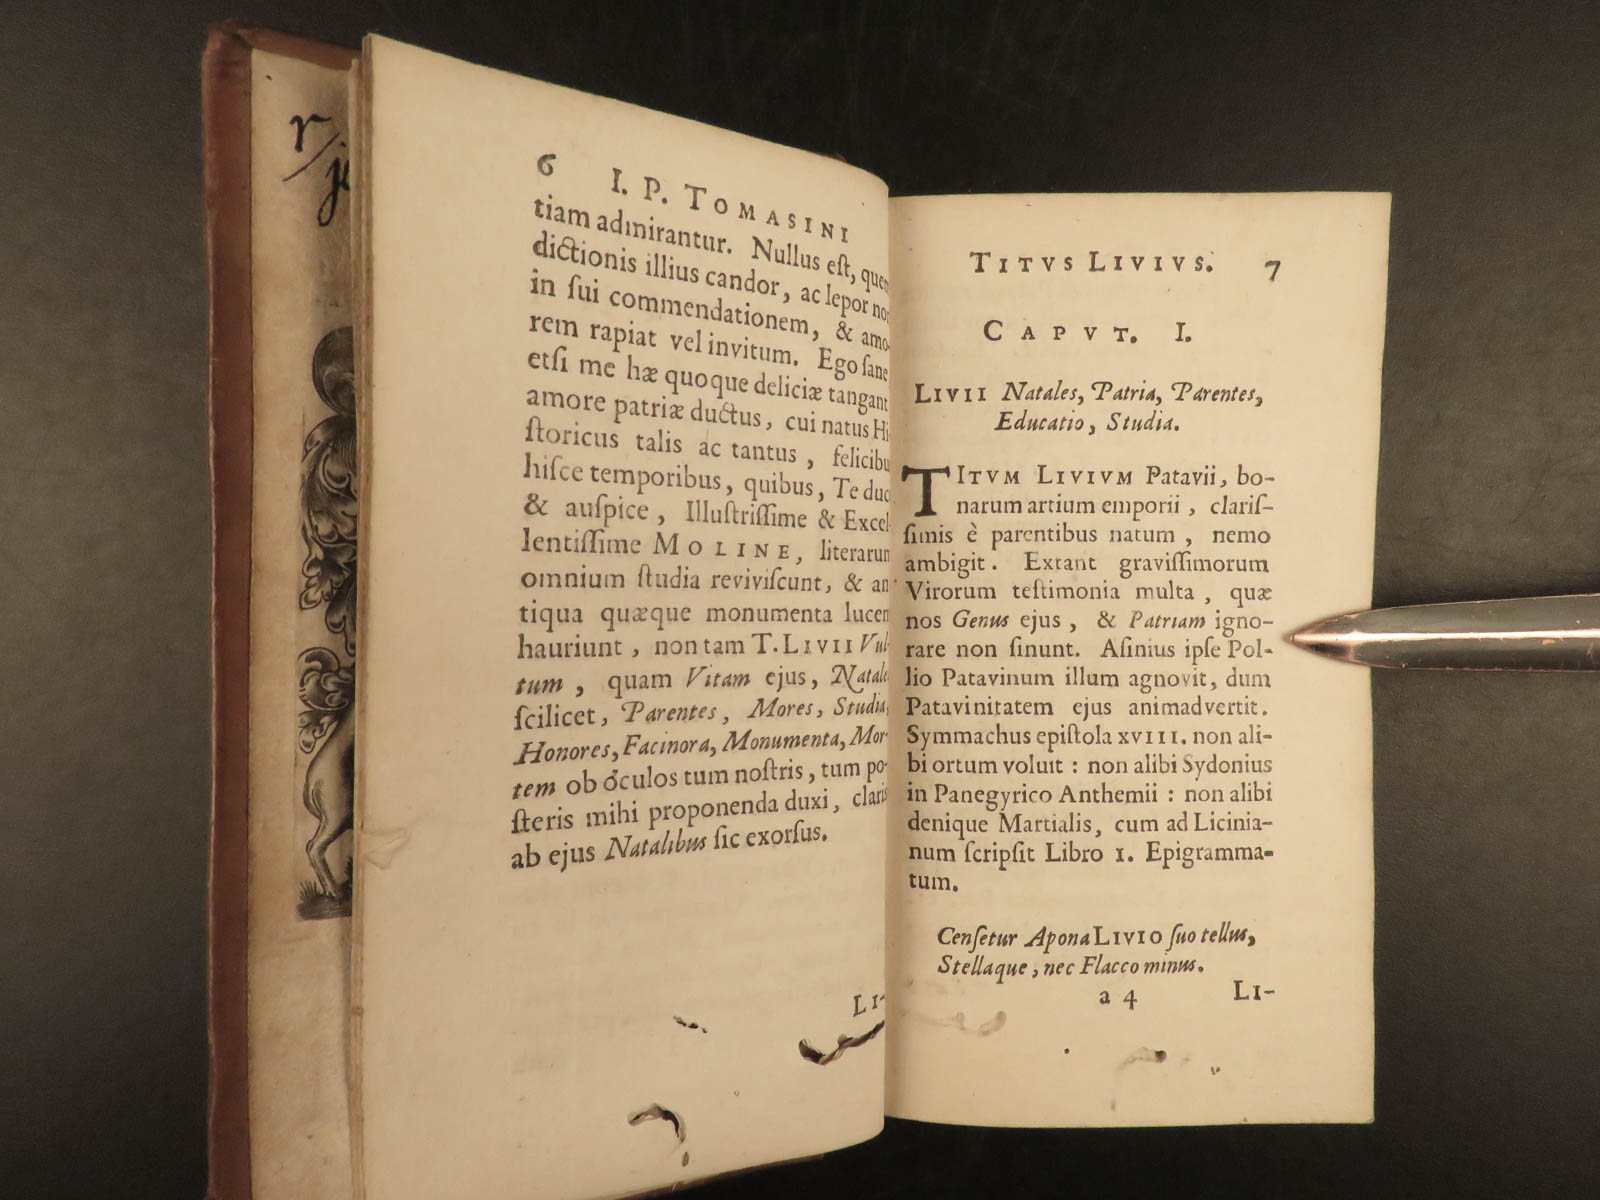 r
6 I. P. TOMASINI
tiam admirantur. Nullus eſt, quem
dictionis illius candor, ac lepor non
in ſui commendationem, & amo-
rem rapiat vel invitum. Ego ſane
etſi me hæ quoque deliciæ tangant
amore patriæ ductus, cui natus Hi-
ſtoricus talis ac tantus, felicibu
hiſce temporibus, quibus, Te duc
& auſpice, Illuſtriſſime & Excel-
lentiſſime MOLINE, literarum
omnium ſtudia reviviſcunt, & an
tiqua quæque monumenta lucem
hauriunt, non tam T. LIVII Vul-
tum, quam Vitam ejus, Natale
ſcilicet, Parentes, Mores, Studia,
Honores, Facinora, Monumenta, Mor-
tem ob óculos tum noſtris, tum po-
ſteris mihi proponenda duxi, claris
ab ejus Natalibus ſic exorſus.
LI-
TITVS LIVIVS. 7
CAPVT. I.
LIVII Natales, Patria, Parentes,
Educatio, Studia.
TITVM LIVIVM Patavii, bo-
narum artium emporii, clariſ-
ſimis è parentibus natum, nemo
ambigit. Extant graviſſimorum
Virorum teſtimonia multa, quæ
nos Genus ejus, & Patriam igno-
rare non ſinunt. Aſinius ipſe Pol-
lio Patavinum illum agnovit, dum
Patavinitatem ejus animadvertit.
Symmachus epiſtola XVIII. non ali-
bi ortum voluit: non alibi Sydonius
in Panegyrico Anthemii: non alibi
denique Martialis, cum ad Licinia-
num ſcripſit Libro I. Epigramma-
tum.
Cenſetur Apona LIVIO ſuo tellus,
Stellaque, nec Flacco minus.
a 4 LI-